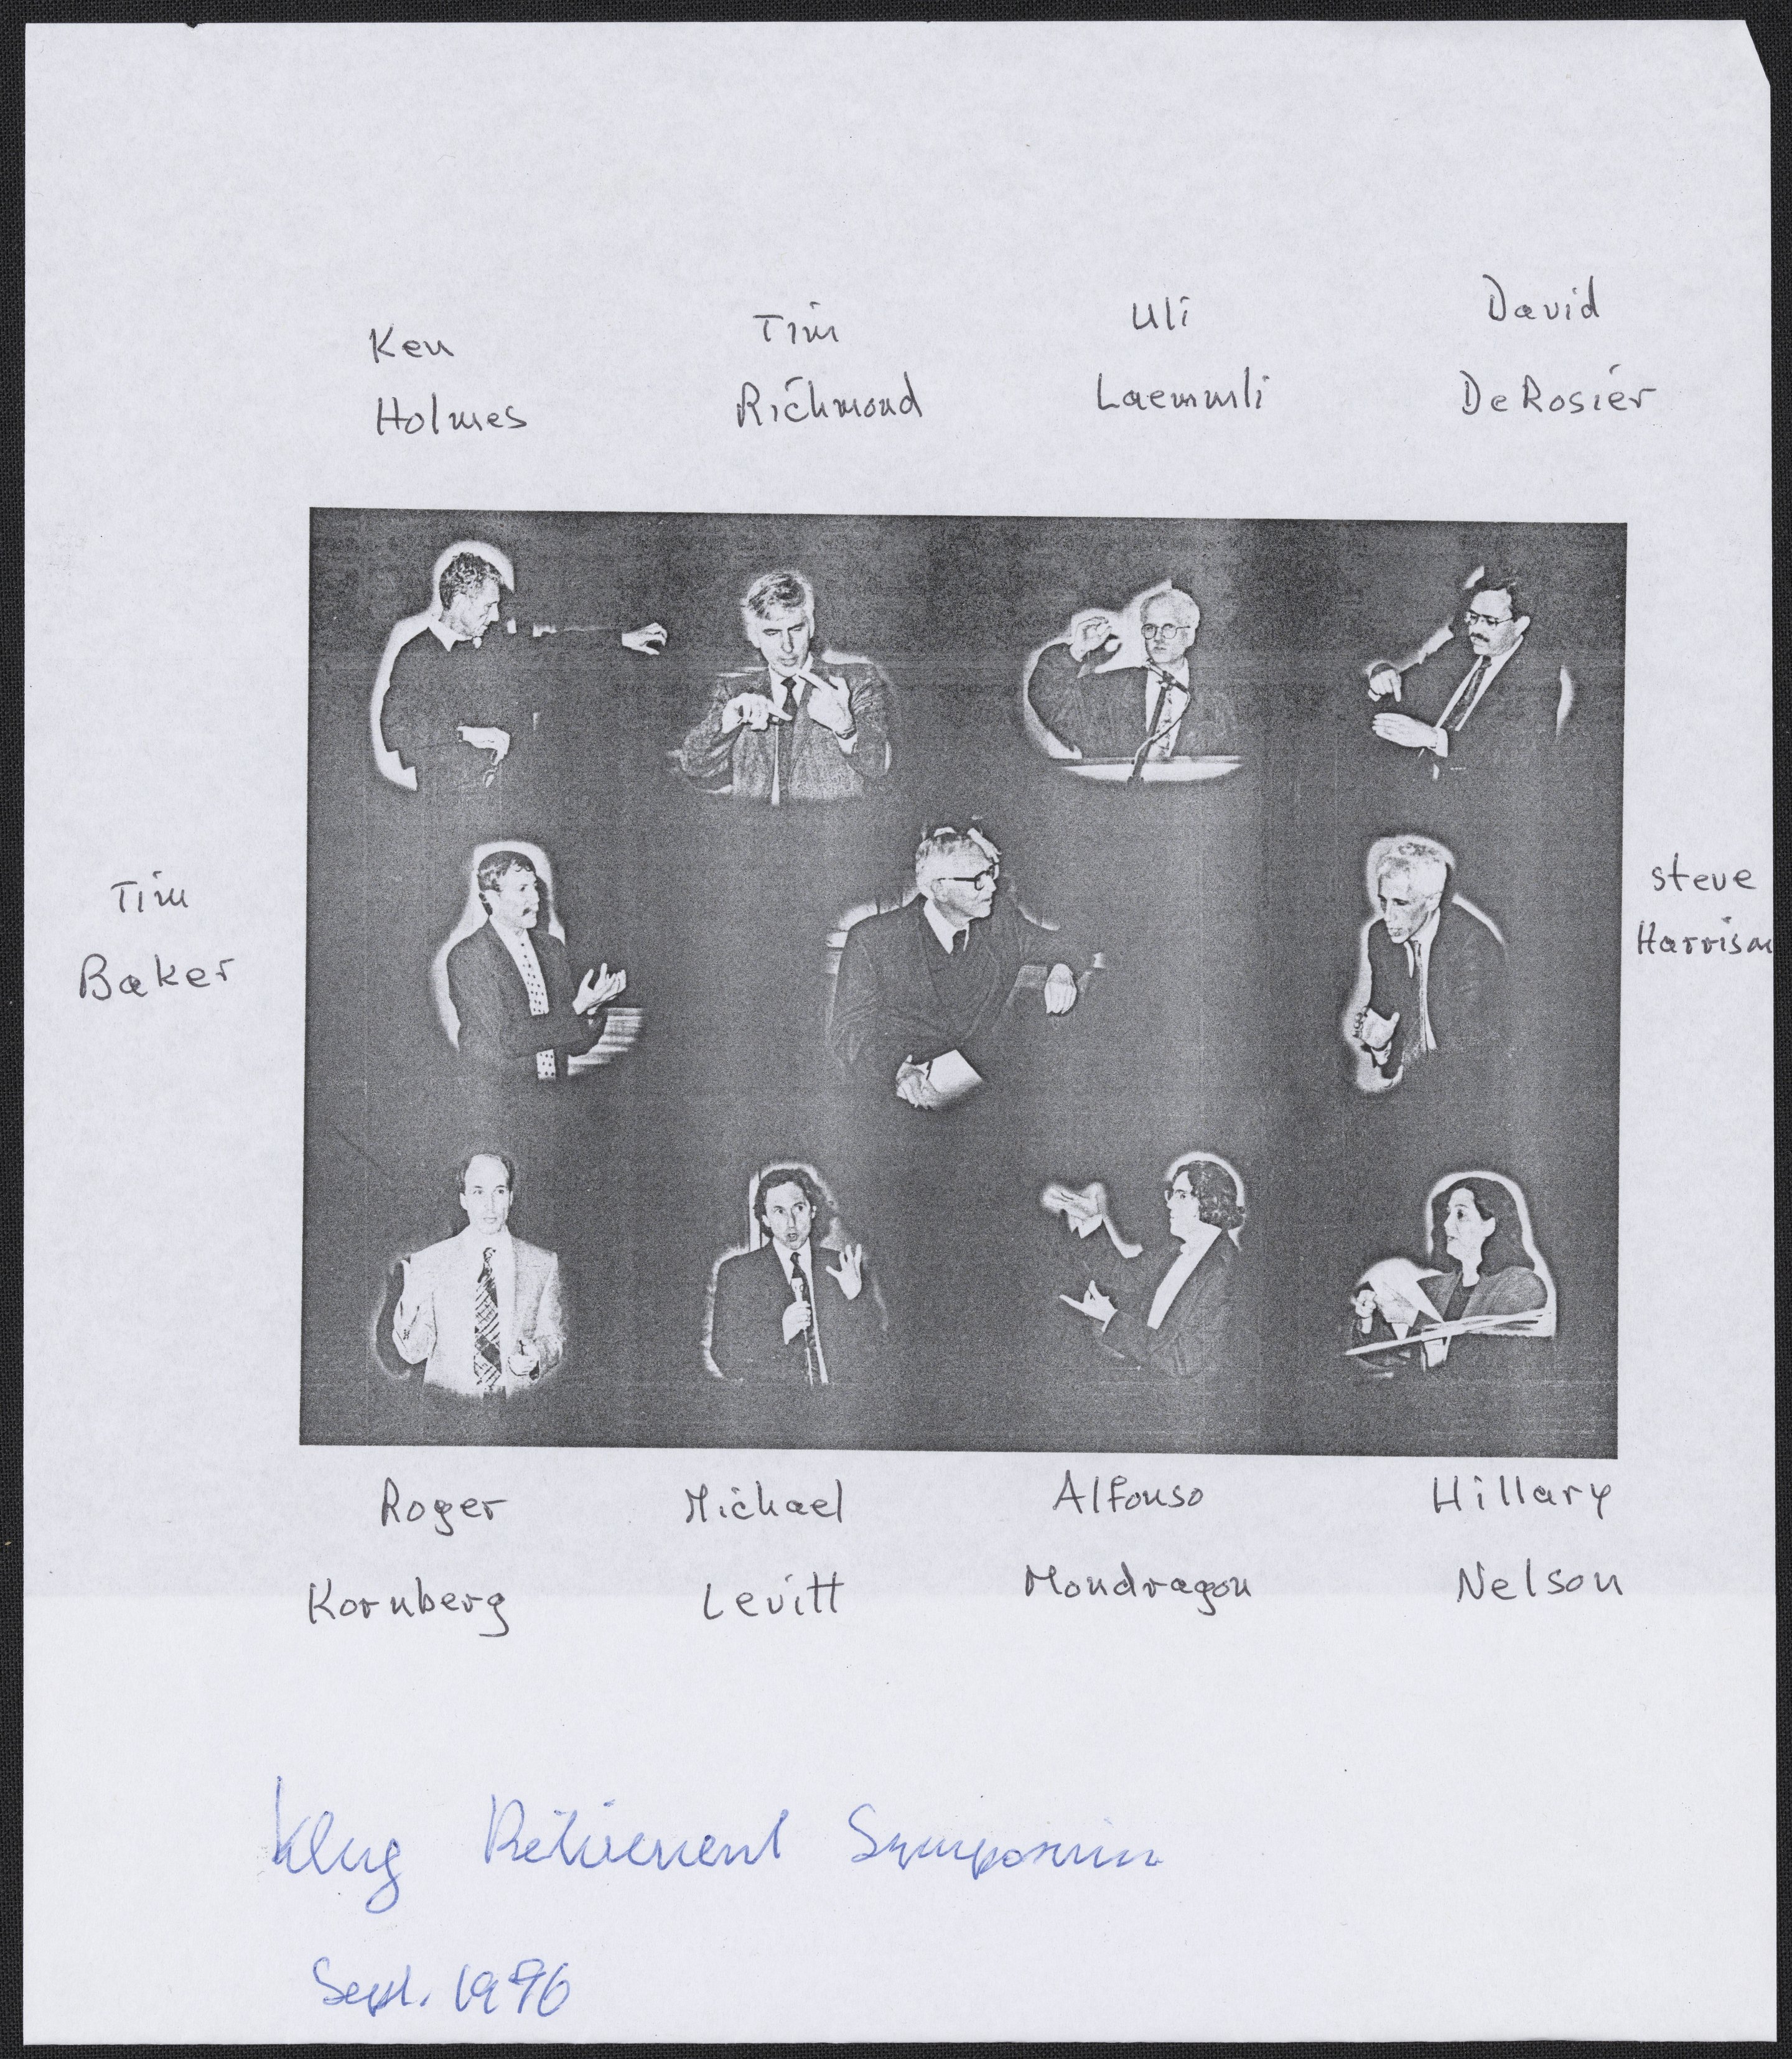 Ken
Holmes
Tim
Richmond
Uli
Laemmli
David
DeRosier
Tim
Baker
Steve
Harrison
Roger
Kornberg
Michael
Levitt
Alfonso
Mondragon
Hillary
Nelson
Klug Retirement Symposium
Sept. 1996